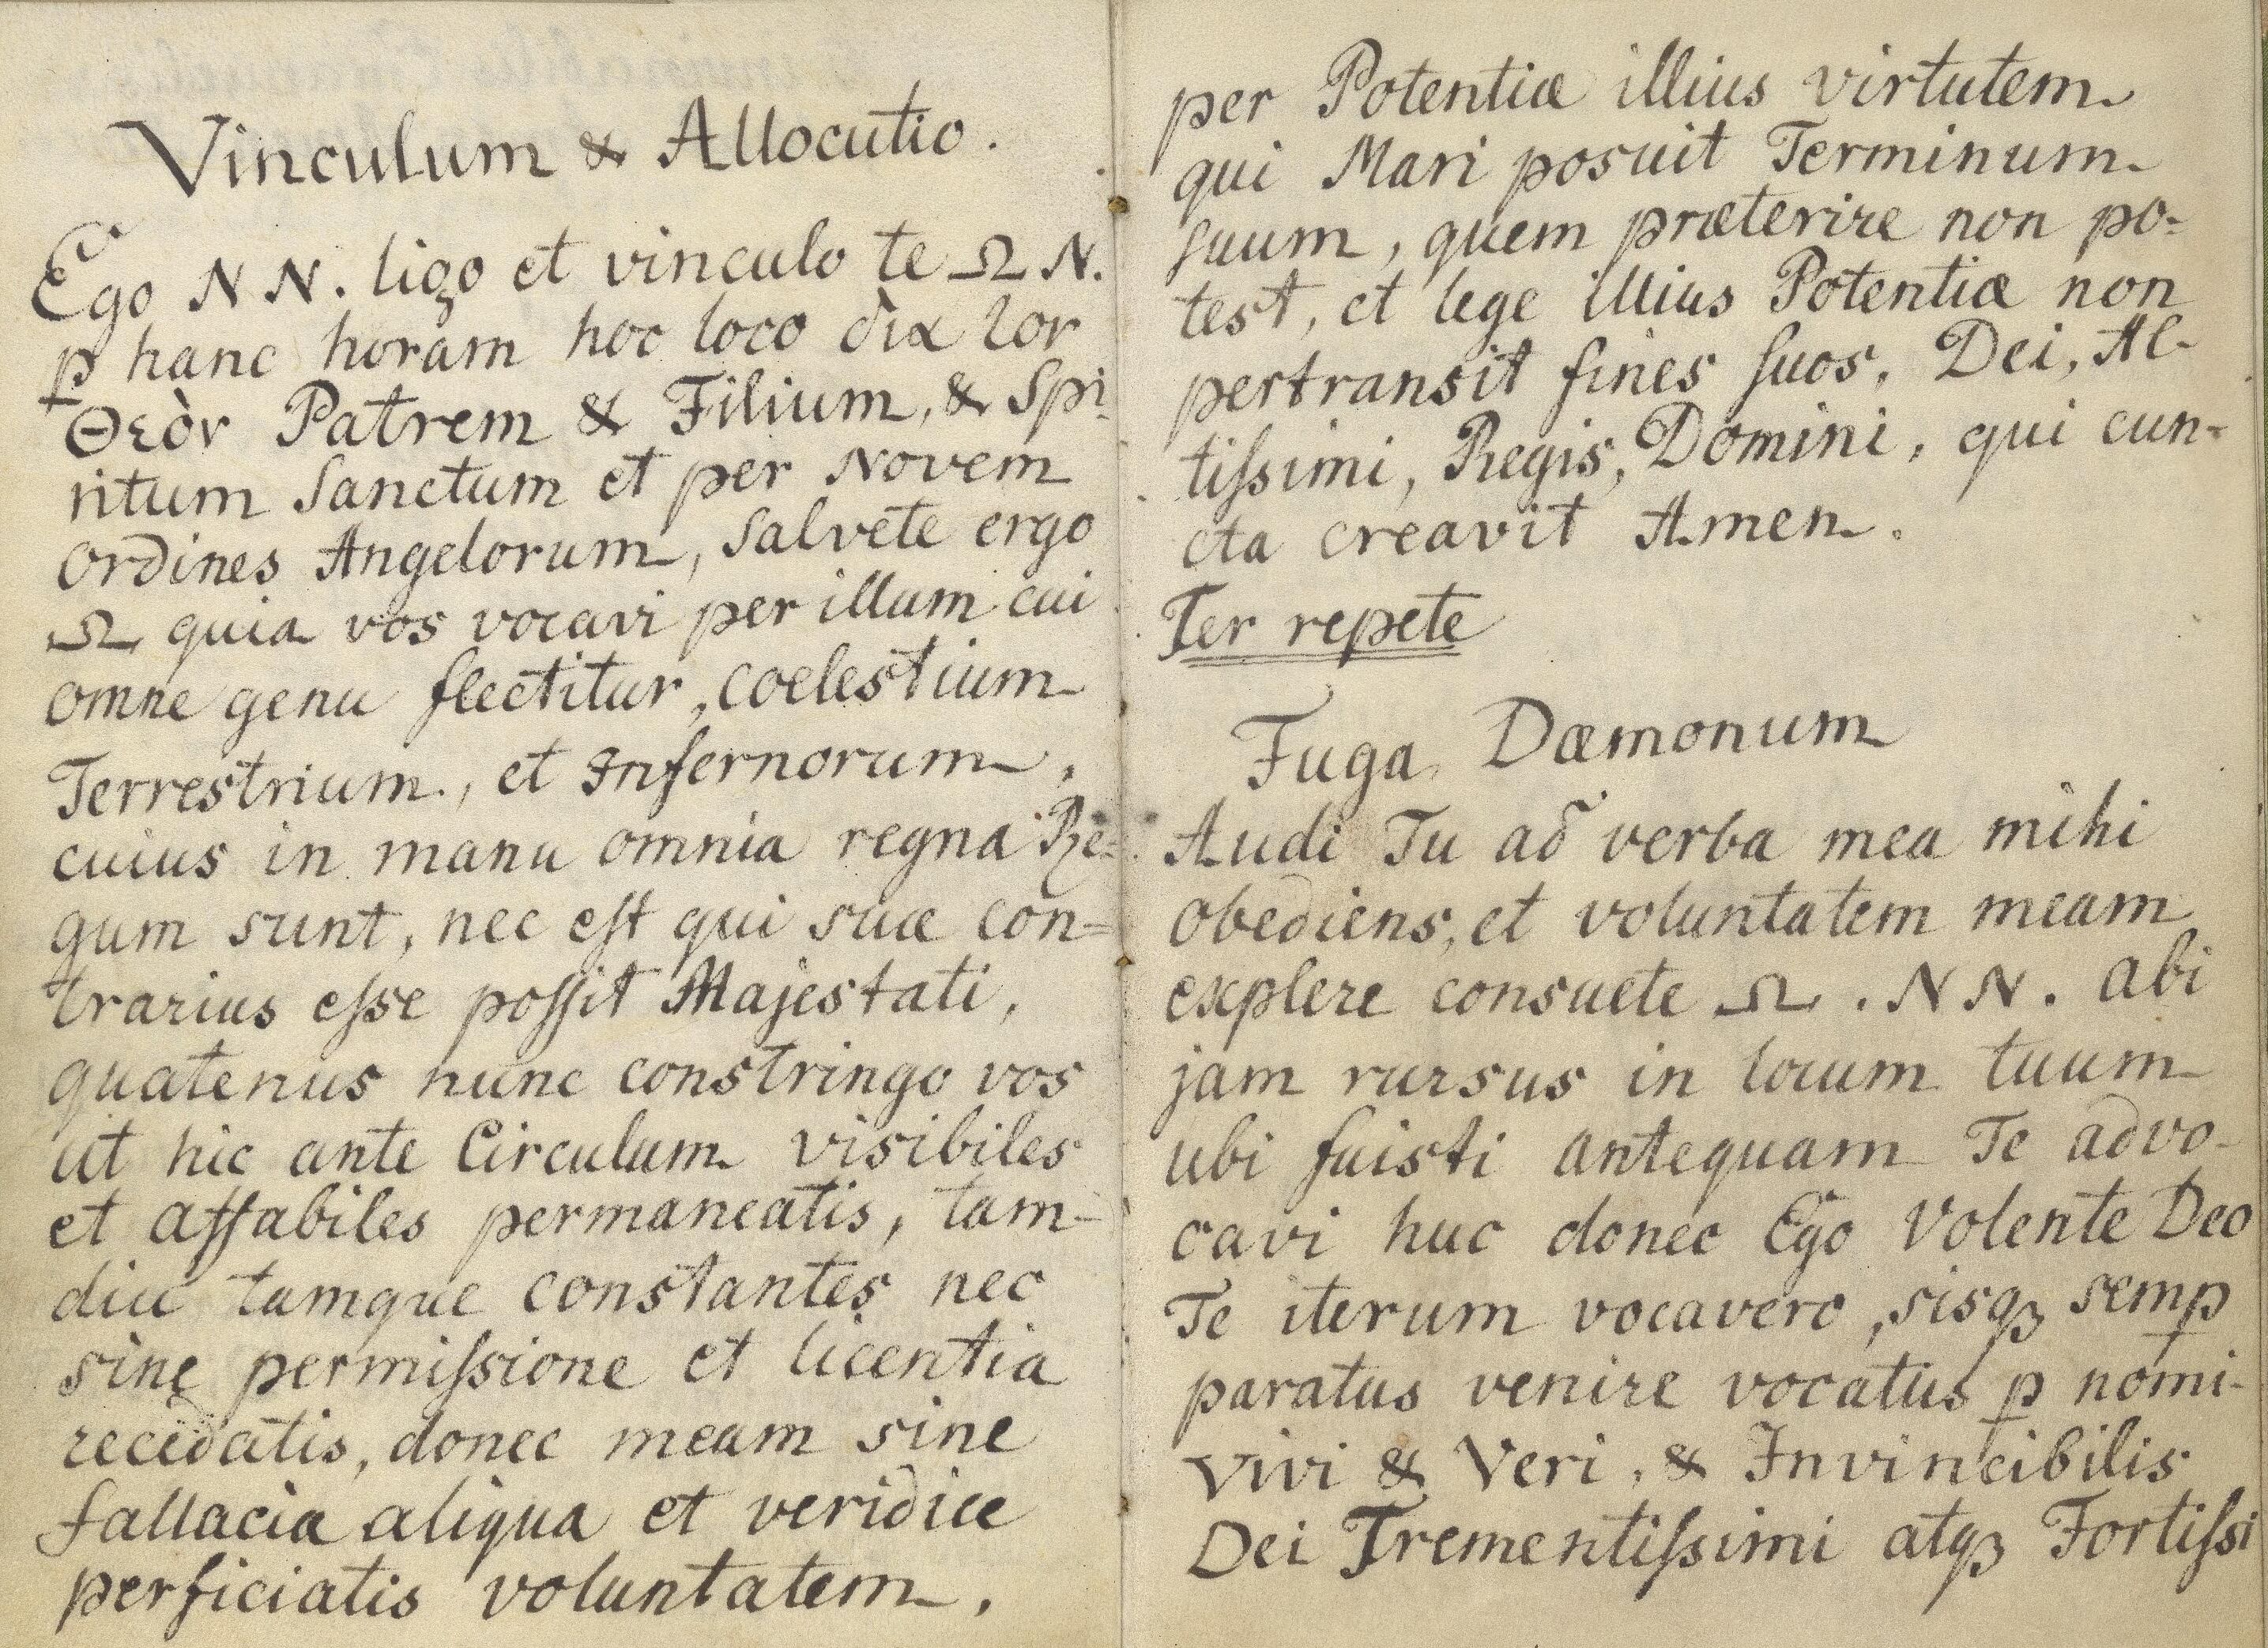 Vinculum & Allocutio.
Ego N N. ligo et vinculo te Ω N.
p hanc horam hoc loco δια τον
Θεὸν Patrem & Filium, & Spi-
ritum Sanctum et per Novem
Ordines Angelorum, Salvete ergo
Ω quia vos vocavi per illum cui
omne genu flectitur, coelestium
Terrestrium, et Infernorum,
cuius in manu omnia regna Re-
gum sunt, nec eſt qui suæ con=
trarius eſse poſſit Majestati,
quatenus nunc constringo vos
ut hic ante Circulum visibiles
et affabiles permaneatis, tam-
diu tamque constantes nec
sine permiſsione et licentia
recedatis, donec meam sine
fallacia aliqua et veridice
perficiatis voluntatem,
per Potentiæ illius virtutem
qui Mari posuit Terminum
ſuum, quem præterire non po=
test, et lege illius Potentiæ non
pertransit fines ſuos, Dei, Al-
tiſsimi, Regis, Domini, qui cun-
cta creavit Amen.
Ter repete
Fuga Dæmonum
Audi Tu ad verba mea mihi
obediens, et voluntatem meam
explere consuete Ω. N N. abi
jam rursus in locum tuum
ubi fuisti antequam Te advo-
cavi huc donec Ego Volente Deo
Te iterum vocavero, sisqꝫ semp
paratus venire vocatus p nomi-
Vivi & Veri, & Invincibilis
Dei Trementiſsimi atqꝫ Fortiſsi